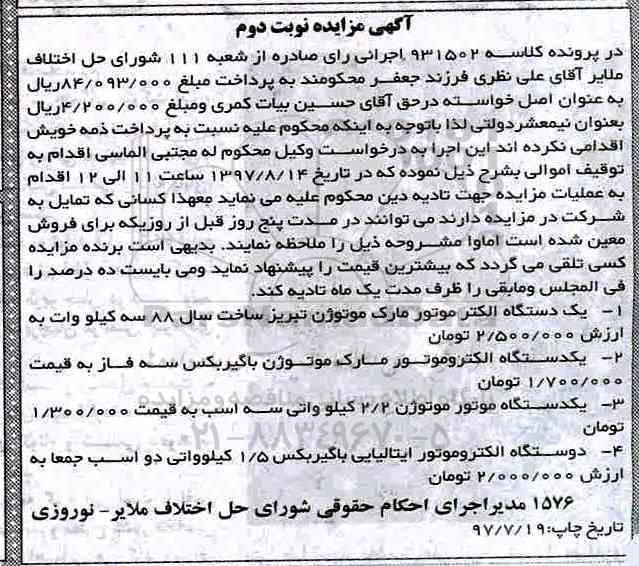 آگهی مزایده نوبت دوم
در پرونده کلاسه ۹۳۱۵۰۲ اجرائی رای صادره از شعبه ۱۱۱ شورای حل اختلاف
ملایر آقای علی نظری فرزند جعفر محکومند به پرداخت مبلغ ۸۴/۰۹۳/۰۰۰ریال
به عنوان اصل خواسته درحق آقای حسین بیات کمری ومبلغ ۴/۲۰۰/۰۰۰ریال
بعنوان نیمعشردولتی لذا باتوجه به اینکه محکوم علیه نسبت به پرداخت ذمه خویش
اقدامی نکرده اند این اجرا به درخواست وکیل محکوم له مجتبی الماسی اقدام به
توقیف اموالی بشرح ذیل نموده که در تاریخ ۱۳۹۷/۸/۱۴ ساعت ۱۱ الی ۱۲ اقدام
به عملیات مزایده جهت تادیه دین محکوم علیه می نماید معهذا کسانی که تمایل به
شرکت در مزایده دارند می توانند در مدت پنج روز قبل از روزیکه برای فروش
معین شده است اماوا مشروحه ذیل را ملاحظه نمایند. بدیهی است برنده مزایده
کسی تلقی می گردد که بیشترین قیمت را پیشنهاد نماید ومی بایست ده درصد را
فی المجلس ومابقی را ظرف مدت یک ماه تادیه کند.
۱- یک دستگاه الکتر موتور مارک موتوژن تبریز ساخت سال ۸۸ سه کیلو وات به
ارزش ۲/۵۰۰/۰۰۰ تومان
۲- یکدستگاه الکتروموتور مارک موتوژن باگیربکس سه فاز به قیمت
۱/۷۰۰/۰۰۰ تومان
۳- یکدستگاه موتور موتوژن ۲/۲ کیلو واتی سه اسب به قیمت ۱/۳۰۰/۰۰۰
تومان
۴- دوستگاه الکتروموتور ایتالیایی باگیربکس ۱/۵ کیلوواتی دو اسب جمعا به
ارزش ۲/۰۰۰/۰۰۰ تومان
۱۵۷۶ مدیراجرای احکام حقوقی شورای حل اختلاف ملایر- نوروزی
تاریخ چاپ:۹۷/۷/۱۹
پایگاه اطلاع رسانی مناقصه و مزایده
۰۲۱-۸۸۳۴۹۶۷۰-۵